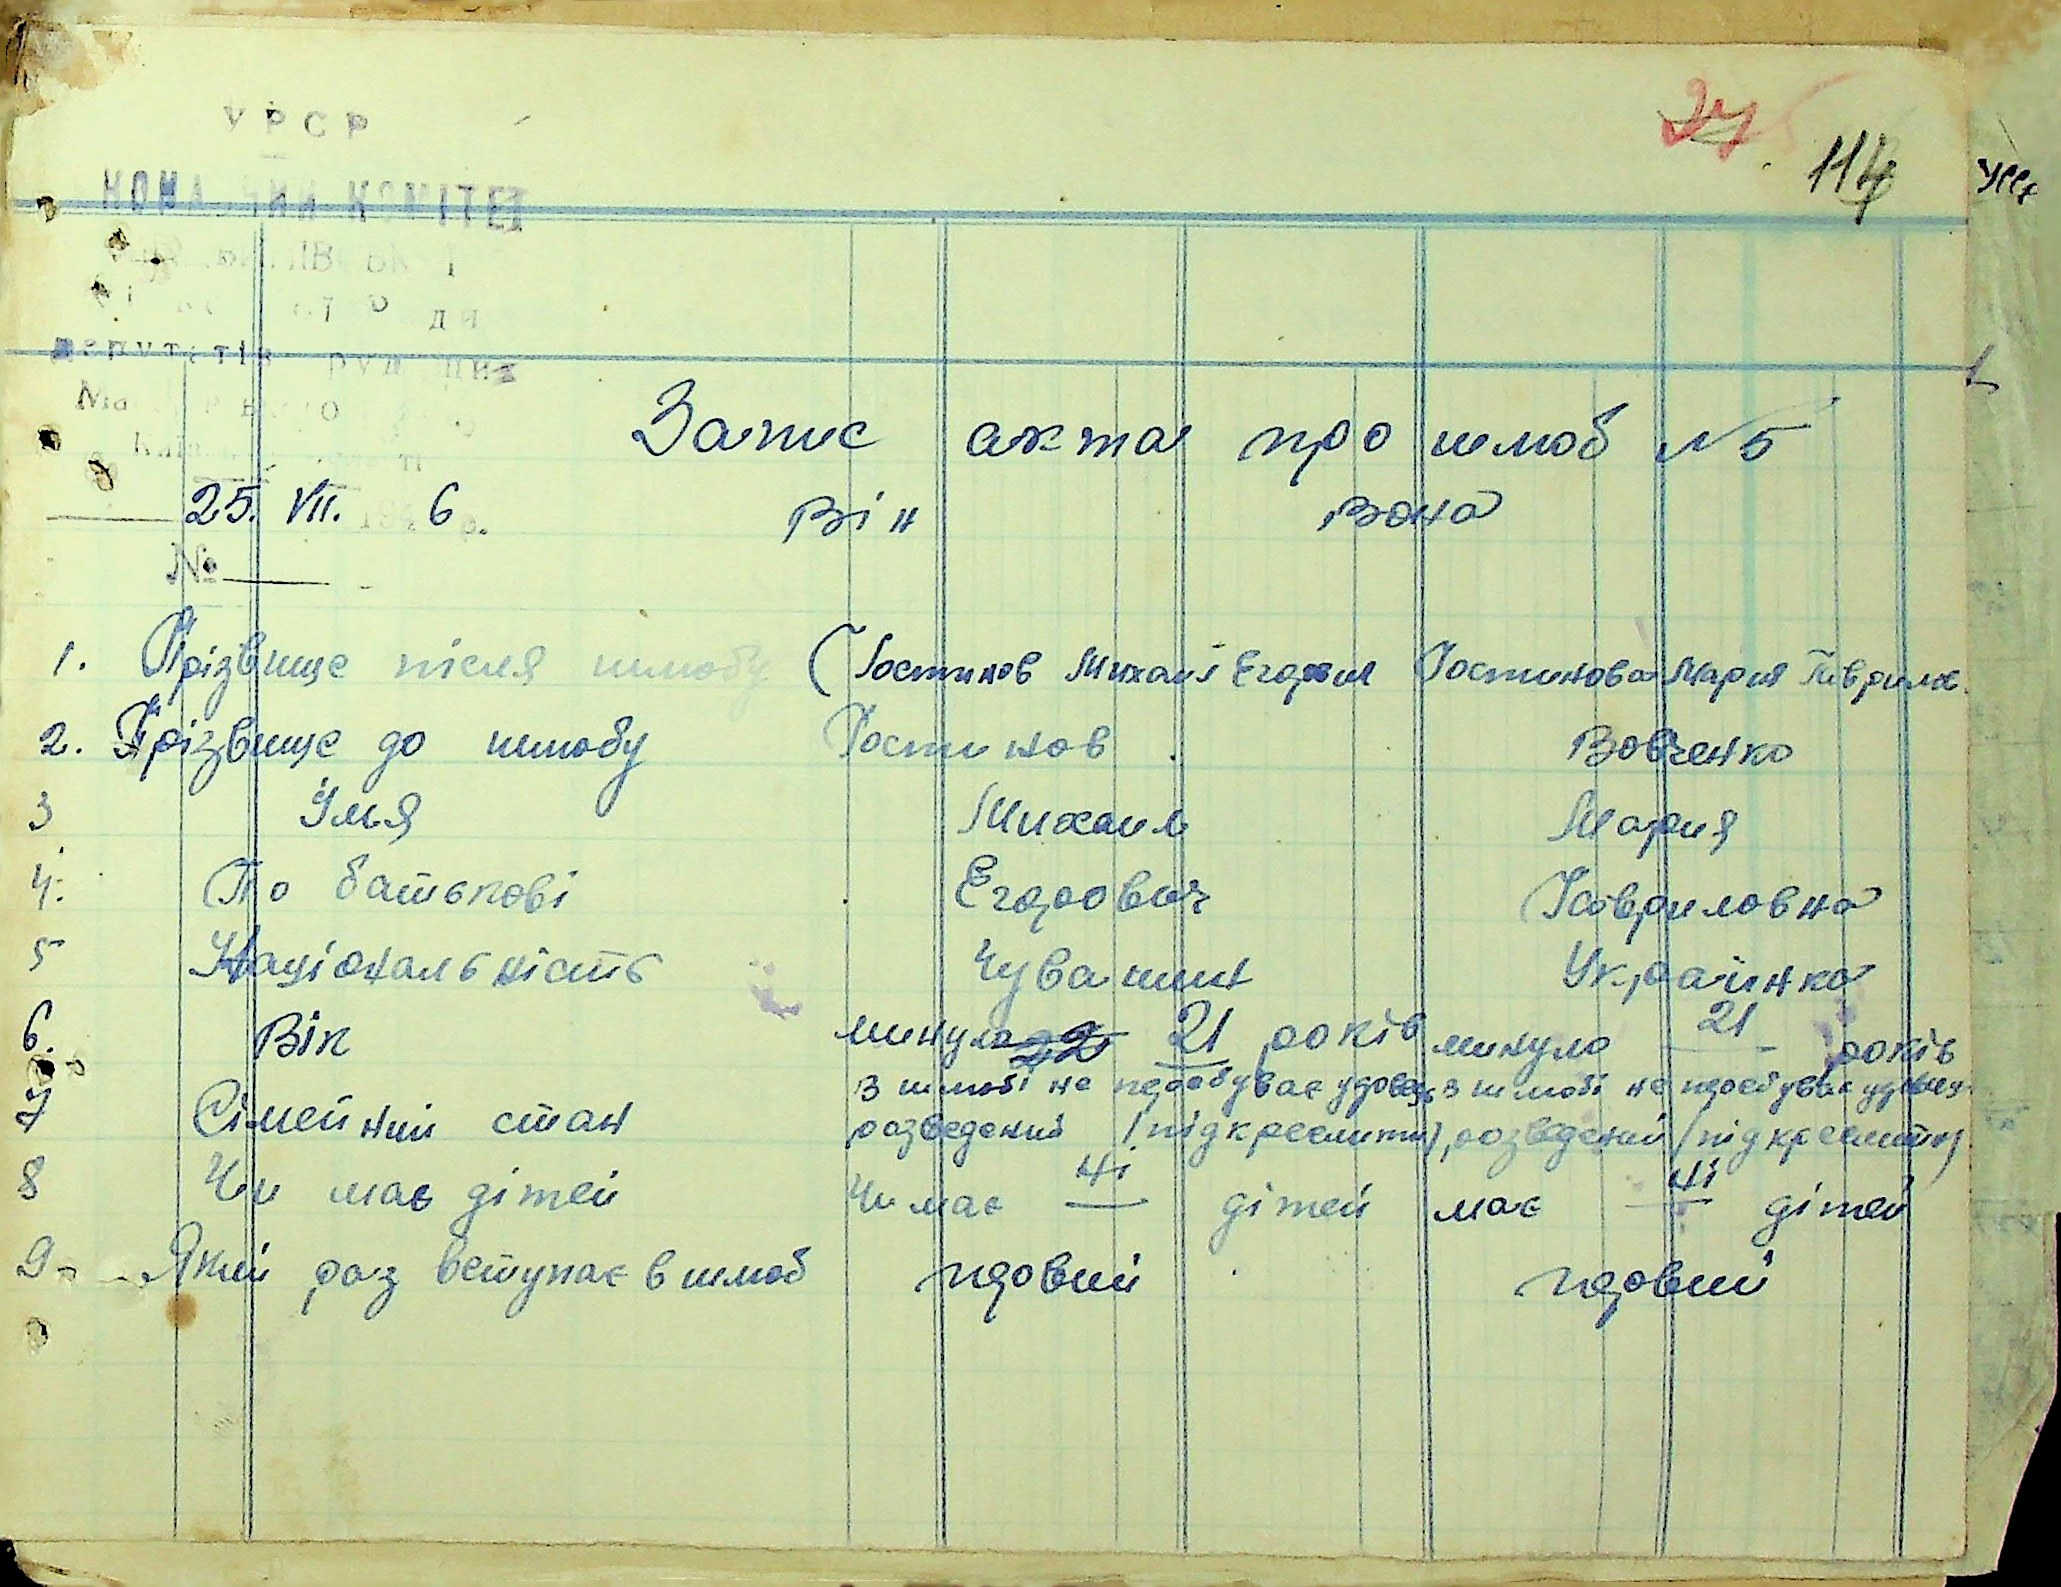 УРСР
27
114
Запис акта про шлюб N 5
25. VII. 6
Він Вона
№
1. Прізвище після шлюбу Гостинов Михаил Егорови Гостинова Мария Гаврилов.
2. Прізвище до шлюбу Гостинов Вовченко
3 Імя Михаил Мария
4. По батькові Егорович Гавриловна
5 Національність Чувашин Українка
6. Вік минуло 22 21 років минуло 21 років
7 Сімейний стан В шлюбі не перебуває удовец В шлюбі не перебуває
розведений /підкреслити) розведений /підкреслити)
8 Чи має дітей Чи має ні дітей має ні дітей
9 Який раз вступає в шлюб первий первий